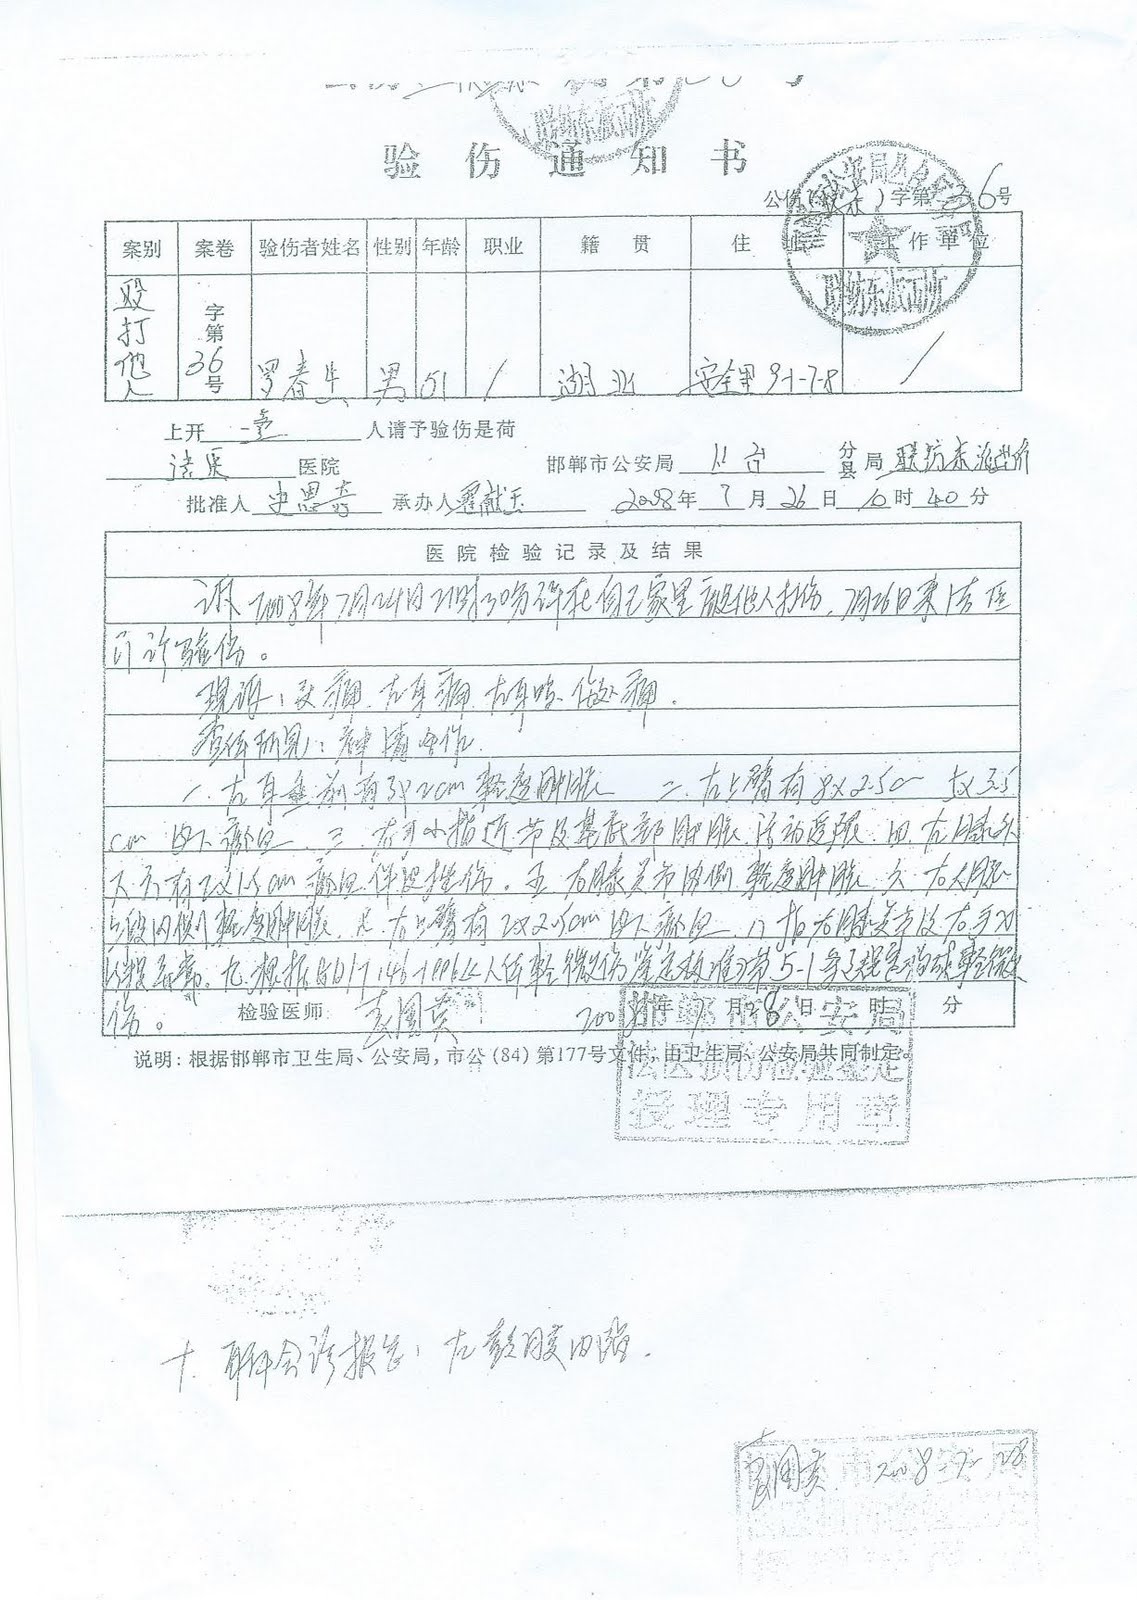 验伤通知书
公伤( )字第36号
案别 案卷 验伤者姓名 性别 年龄 职业 籍贯 住址 工作单位
殴打他人 字第36号 罗春生 男 51 / 湖北 安全里9-1-7-8 /
上开 壹 人请予验伤是荷
法医 医院 邯郸市公安局 丛台 分县局 联纺东派出所
批准人 史恩奇 承办人 献玉 2008年7月26日10时40分
医院检验记录及结果
诉2008年7月24日21时30分许在自己家里被他人打伤，7月26日来法医
门诊验伤。
现诉：头痛、左耳痛、左耳鸣、伤处痛。
查体所见：神清合作
一、左耳垂前有3×2cm轻度肿胀 二、左上臂有8×2.5cm 5×3.5
cm皮下瘀血、三、右手小指近节及基底部肿胀、活动受限、四、左膝
下方有2×1.5cm瘀血伴皮挫伤。五、右膝关节内侧轻度肿胀、六、右
段内侧轻度肿胀、七、右上臂有2×2.5cm皮下瘀血、八、拍右膝关节及右手
异常。九、根据GA/T146-1996人体轻微伤鉴定标准3节5-1条之规定 轻微
伤。 检验医师 2008年7月28日 时 分
说明：根据邯郸市卫生局、公安局，市公(84)第177号文件，由卫生局、公安局共同制定。
邯郸市公安局
法医损伤检验鉴定
受理专用章
十、耳科会诊报告：左鼓膜内陷.
2008-7-28